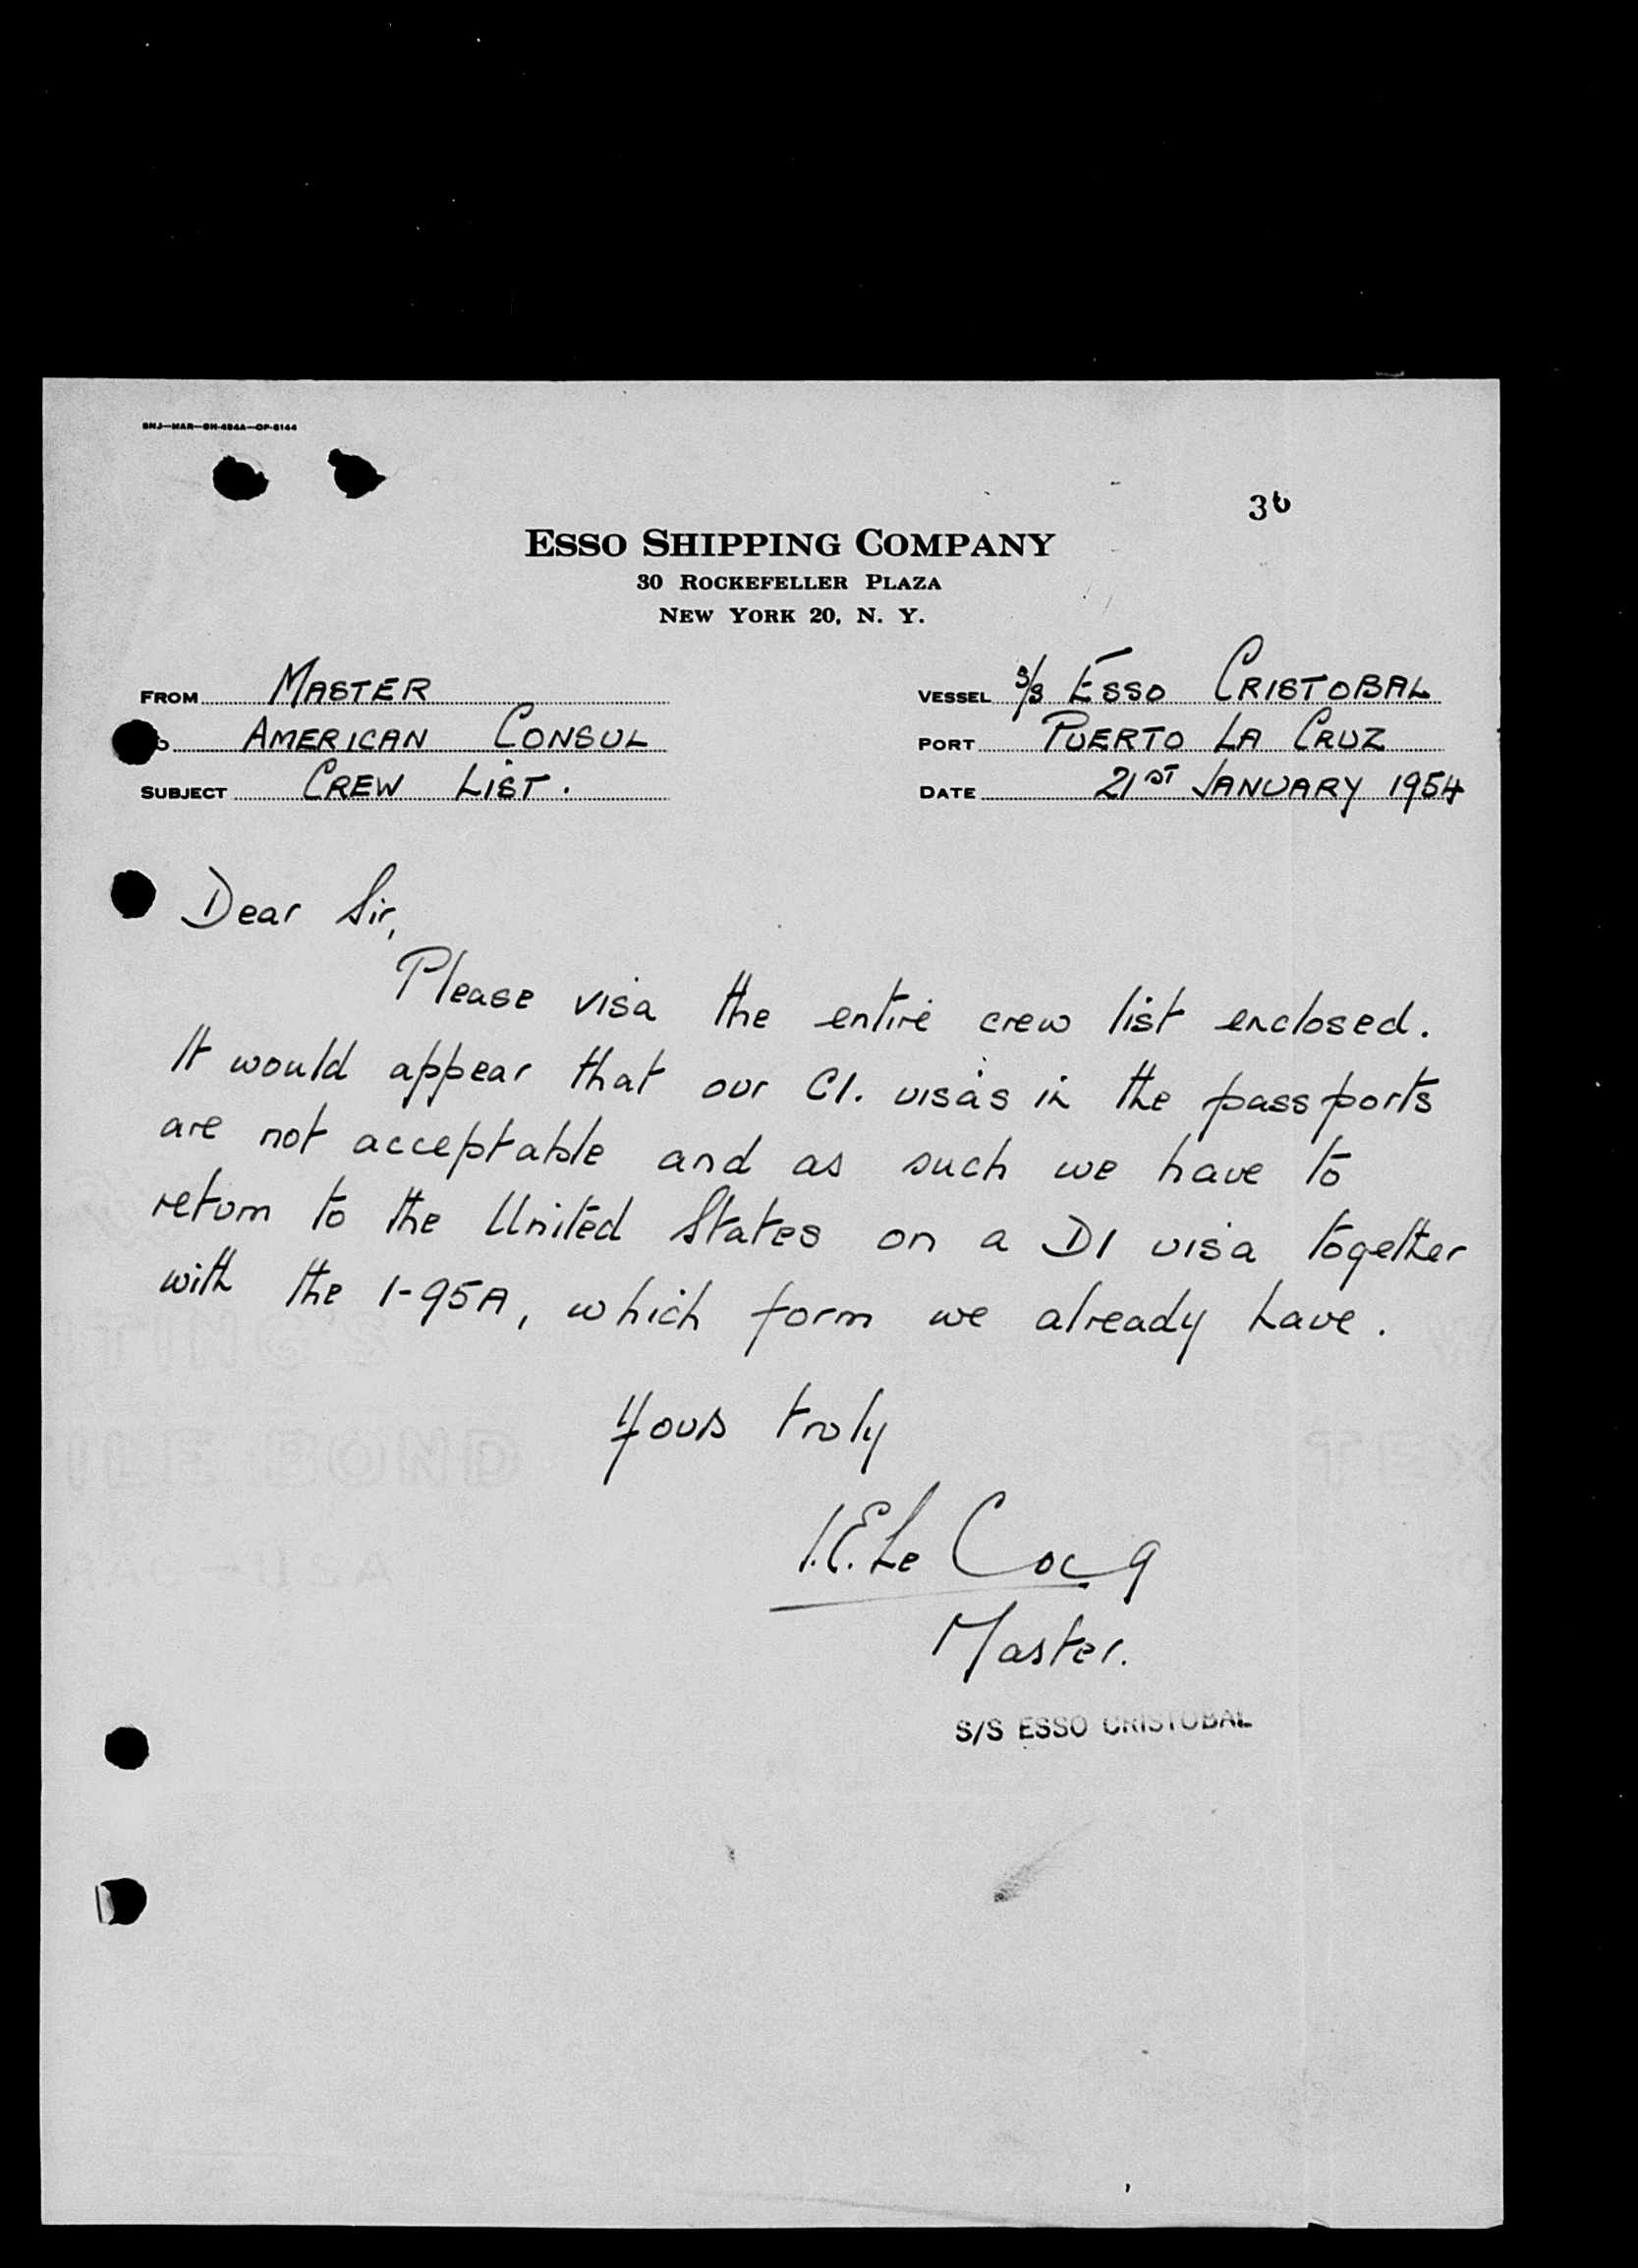 SNJ—MAR—SH-494A—OP-6144
36
ESSO SHIPPING COMPANY
30 ROCKEFELLER PLAZA
NEW YORK 20, N. Y.
FROM MASTER
VESSEL S/S ESSO CRISTOBAL
AMERICAN CONSUL
PORT PUERTO LA CRUZ
SUBJECT CREW LIST.
DATE 21ST JANUARY 1954
Dear Sir,
Please visa the entire crew list enclosed.
It would appear that our C1. visas in the passports
are not acceptable and as such we have to
return to the United States on a D1 visa together
with the 1-95A, which form we already have.
Yours truly
Le Cocq
Master.
S/S ESSO CRISTOBAL
ILE BOND